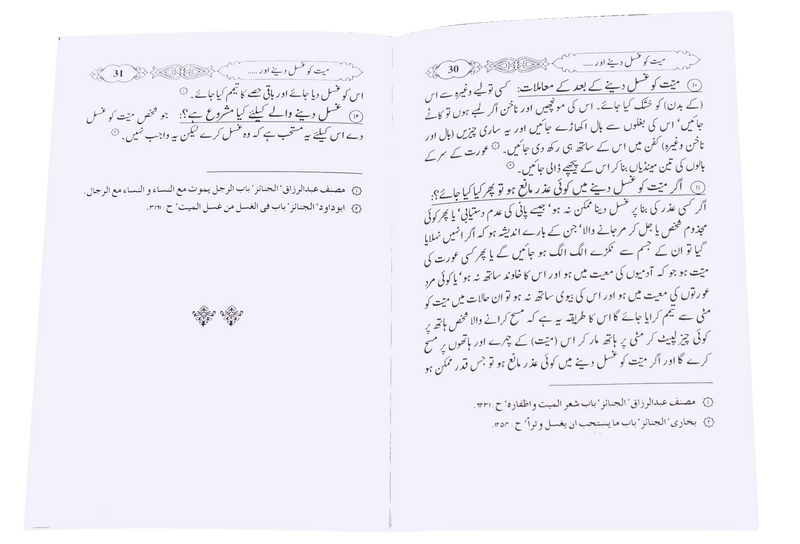 میّت کو غسل دینے اور .....
30
⑩ میّت کو غسل دینے کے بعد کے معاملات: کسی تولیے وغیرہ سے اس
(کے بدن) کو خشک کیا جائے۔ اس کی مونچھیں اور ناخن اگر لمبے ہوں تو کاٹے
جائیں' اس کی بغلوں سے بال اکھاڑے جائیں اور یہ ساری چیزیں (بال اور
ناخن وغیرہ) کفن میں اس کے ساتھ ہی رکھ دی جائیں۔ ① عورت کے سر کے
بالوں کی تین مینڈیاں بنا کر اس کے پیچھے ڈالی جائیں۔ ②
⑪ اگر میّت کو غسل دینے میں کوئی عذر مانع ہو تو پھر کیا کیا جائے؟:
اگر کسی عذر کی بنا پر غسل دینا ممکن نہ ہو' جیسے پانی کی عدم دستیابی' یا پھر کوئی
مجذوم شخص یا جل کر مر جانے والا' جن کے بارے اندیشہ ہو کہ اگر انہیں نہلایا
گیا تو ان کے جسم سے ٹکڑے الگ الگ ہو جائیں گے یا پھر کسی عورت کی
میّت ہو جو کہ آدمیوں کی معیت میں ہو اور اس کا خاوند ساتھ نہ ہو' یا کوئی مرد
عورتوں کی معیت میں ہو اور اس کی بیوی ساتھ نہ ہو تو ان حالات میں میّت کو
مٹی سے تیمم کرایا جائے گا اس کا طریقہ یہ ہے کہ مسح کرانے والا شخص ہاتھ پر
کوئی چیز لپیٹ کر مٹی پر ہاتھ مار کر اس (میّت) کے چہرے اور ہاتھوں پر مسح
کرے گا اور اگر میّت کو غسل دینے میں کوئی عذر مانع ہو تو جس قدر ممکن ہو
① مصنف عبدالرزاق' الجنائز' باب شعر المیت و اظفارہ' ح: ٦٢٣١.
② بخاری' الجنائز' باب ما یستحب ان یغسل وترا' ح: ١٢٥٤.
میّت کو غسل دینے اور .....
31
اس کو غسل دیا جائے اور باقی حصے کا تیمم کیا جائے۔ ①
⑫ غسل دینے والے کیلئے کیا مشروع ہے؟: جو شخص میّت کو غسل
دے اس کیلئے یہ مستحب ہے کہ وہ غسل کرے لیکن یہ واجب نہیں۔ ②
① مصنف عبدالرزاق' الجنائز' باب الرجل یموت مع النساء و النساء مع الرجال.
② ابوداود' الجنائز' باب فی الغسل من غسل المیت' ح: ٣١٦١.